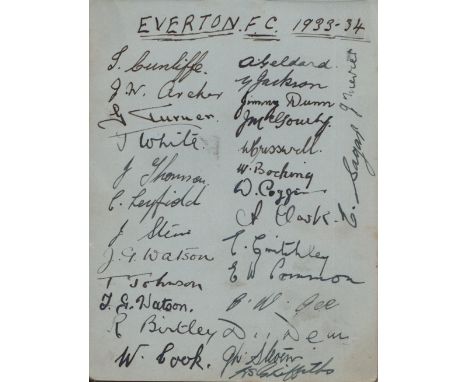 EVERTON. F.C. 1933-34
J. Cunliffe.
J. W. Archer
G Turner.
T White.
J Thomson
C. Leyfield
J Stein
J. G Watson
T Johnson
T. G. Watson.
R Birtley
W. Cook.
A Geldard.
G Jackson
Jimmy Dunn
J McGourty.
W Cresswell.
W. Bocking
W. Coggin
A Clark.
C. Gritchley
E W Common
B. W. Gee
D.. Dean
J W Stein
P Griffiths
E. Sagar
J Mercer